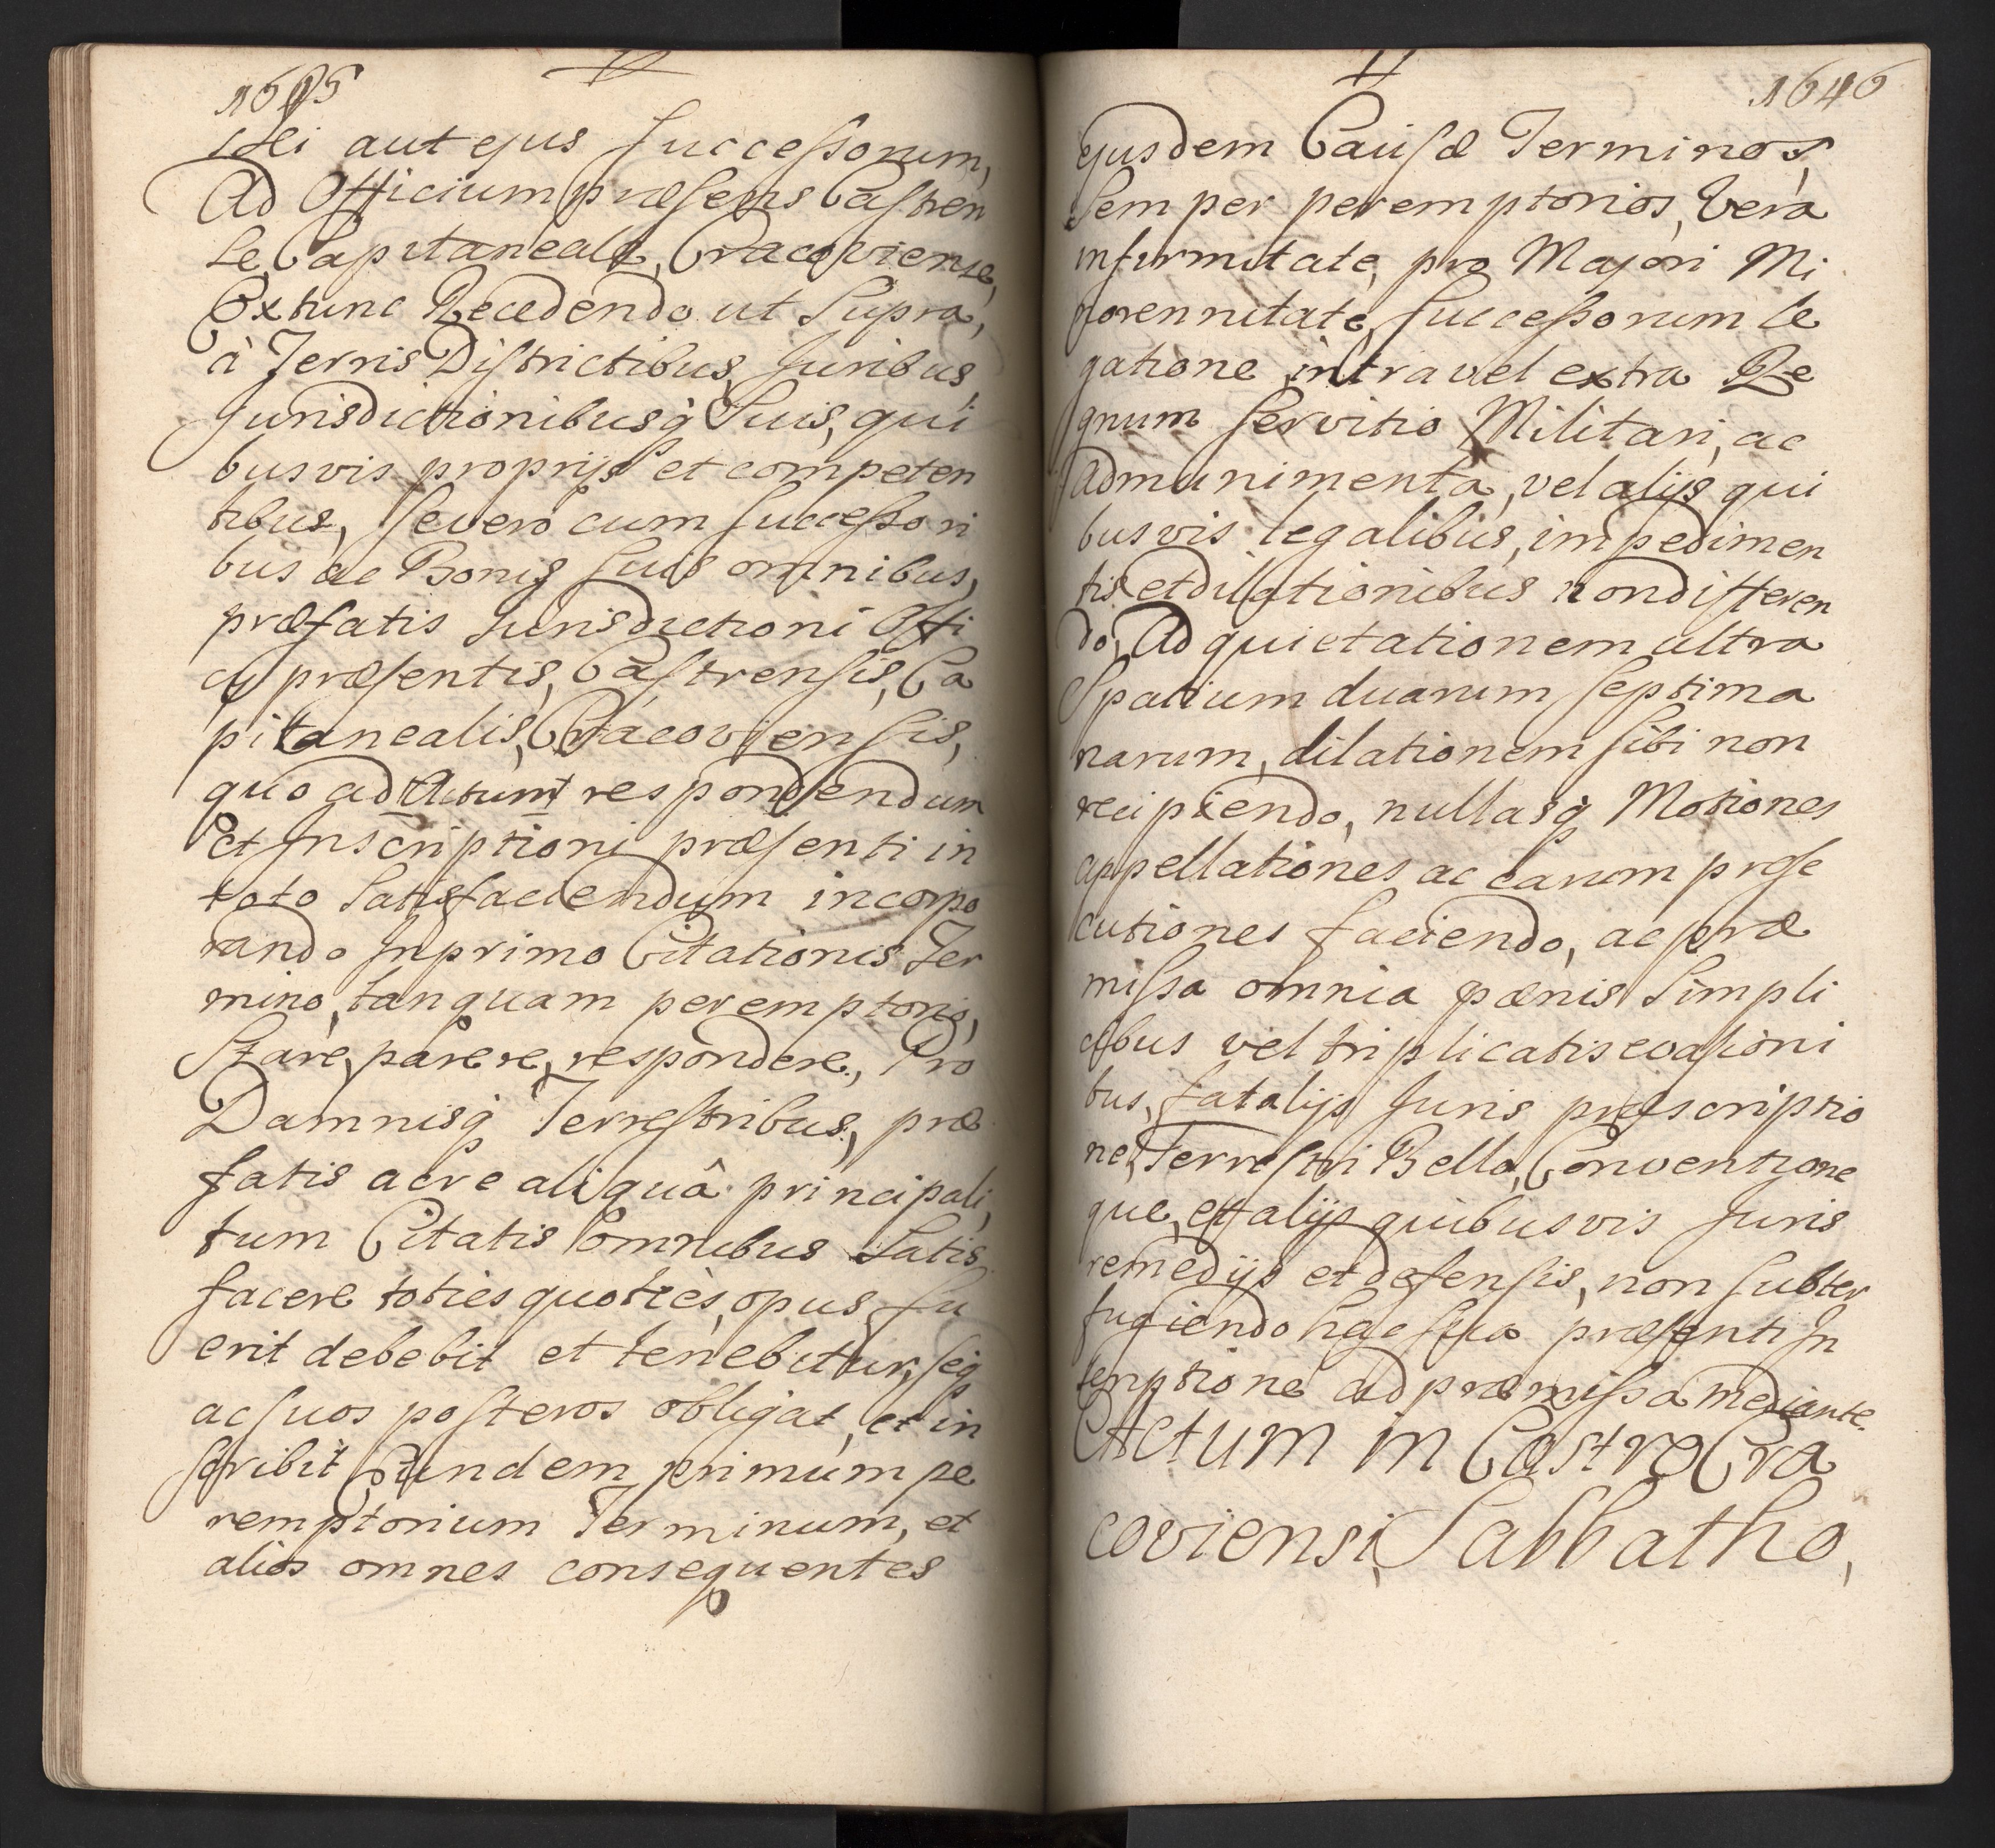 1645
sui aut ejus Succeſsorum,
Ad Officium præſens Caſtren
se, Capitaneale, Cracoviense,
Extunc Recedendo ut Supra,
à Terris Diſtrictibus, Juribus,
Jurisdictionibusq́ Suis, qui
busvis proprijs et competen
tibus, ſevero cum ſucceſsori
bus ac Bonis ſuis omnibus,
præfatis Jurisdictioni Offi
cij præſentis, Caſtrenſis, Ca
pitanealis, Cracovienſis,
quo ad Actum respondendum
et Inscriptioni præſenti in
toto Satisfaciendum incorpo
rando In primo Citationis Ter
mino, tanquam peremptorio,
Stare, parere, respondere, Pro
Damnisq́ Terreſtribus, præ
fatis ac re aliquâ principali,
tum Citatis omnibus Satis
facere toties quoties, opus fu
erit debebit et tenebitur, ſeq́
ac ſuos poſteros obligat, et in
ſcribit Eundem primum pe
remptorium Terminum, et
alios omnes consequentes
1646
ejusdem Cauſæ Terminos,
Semper peremptorios, Vera
infirmitate, pro Majori Mi
norennitate, Succeſsorum le
gatione intra vel extra Re
gnum ſervitio Militari, ac
ad munimenta, vel alijs qui
busvis legalibus, impedimen
tis et dilationibus non differen
do, Ad quietationem ultra
Spatium duarum ſeptima
narum, dilationem ſibi non
recipiendo, nullasq́ Motiones
appellationes ac earum proſe
cutiones faciendo, ac præ
miſsa omnia pœnis Simpli
cibus vel triplicatis evaſioni
bus, fatalijs Juris præscriptio
ne, Terreſtri Bello, Conventione
que, et alijs quibusvis Juris
remedijs et defenſis, non ſubter
fugiendo hac ſua præſenti In
scriptione ad præmiſsa mediante.
Actum in Castro Cra
coviensi, Sabbatho,